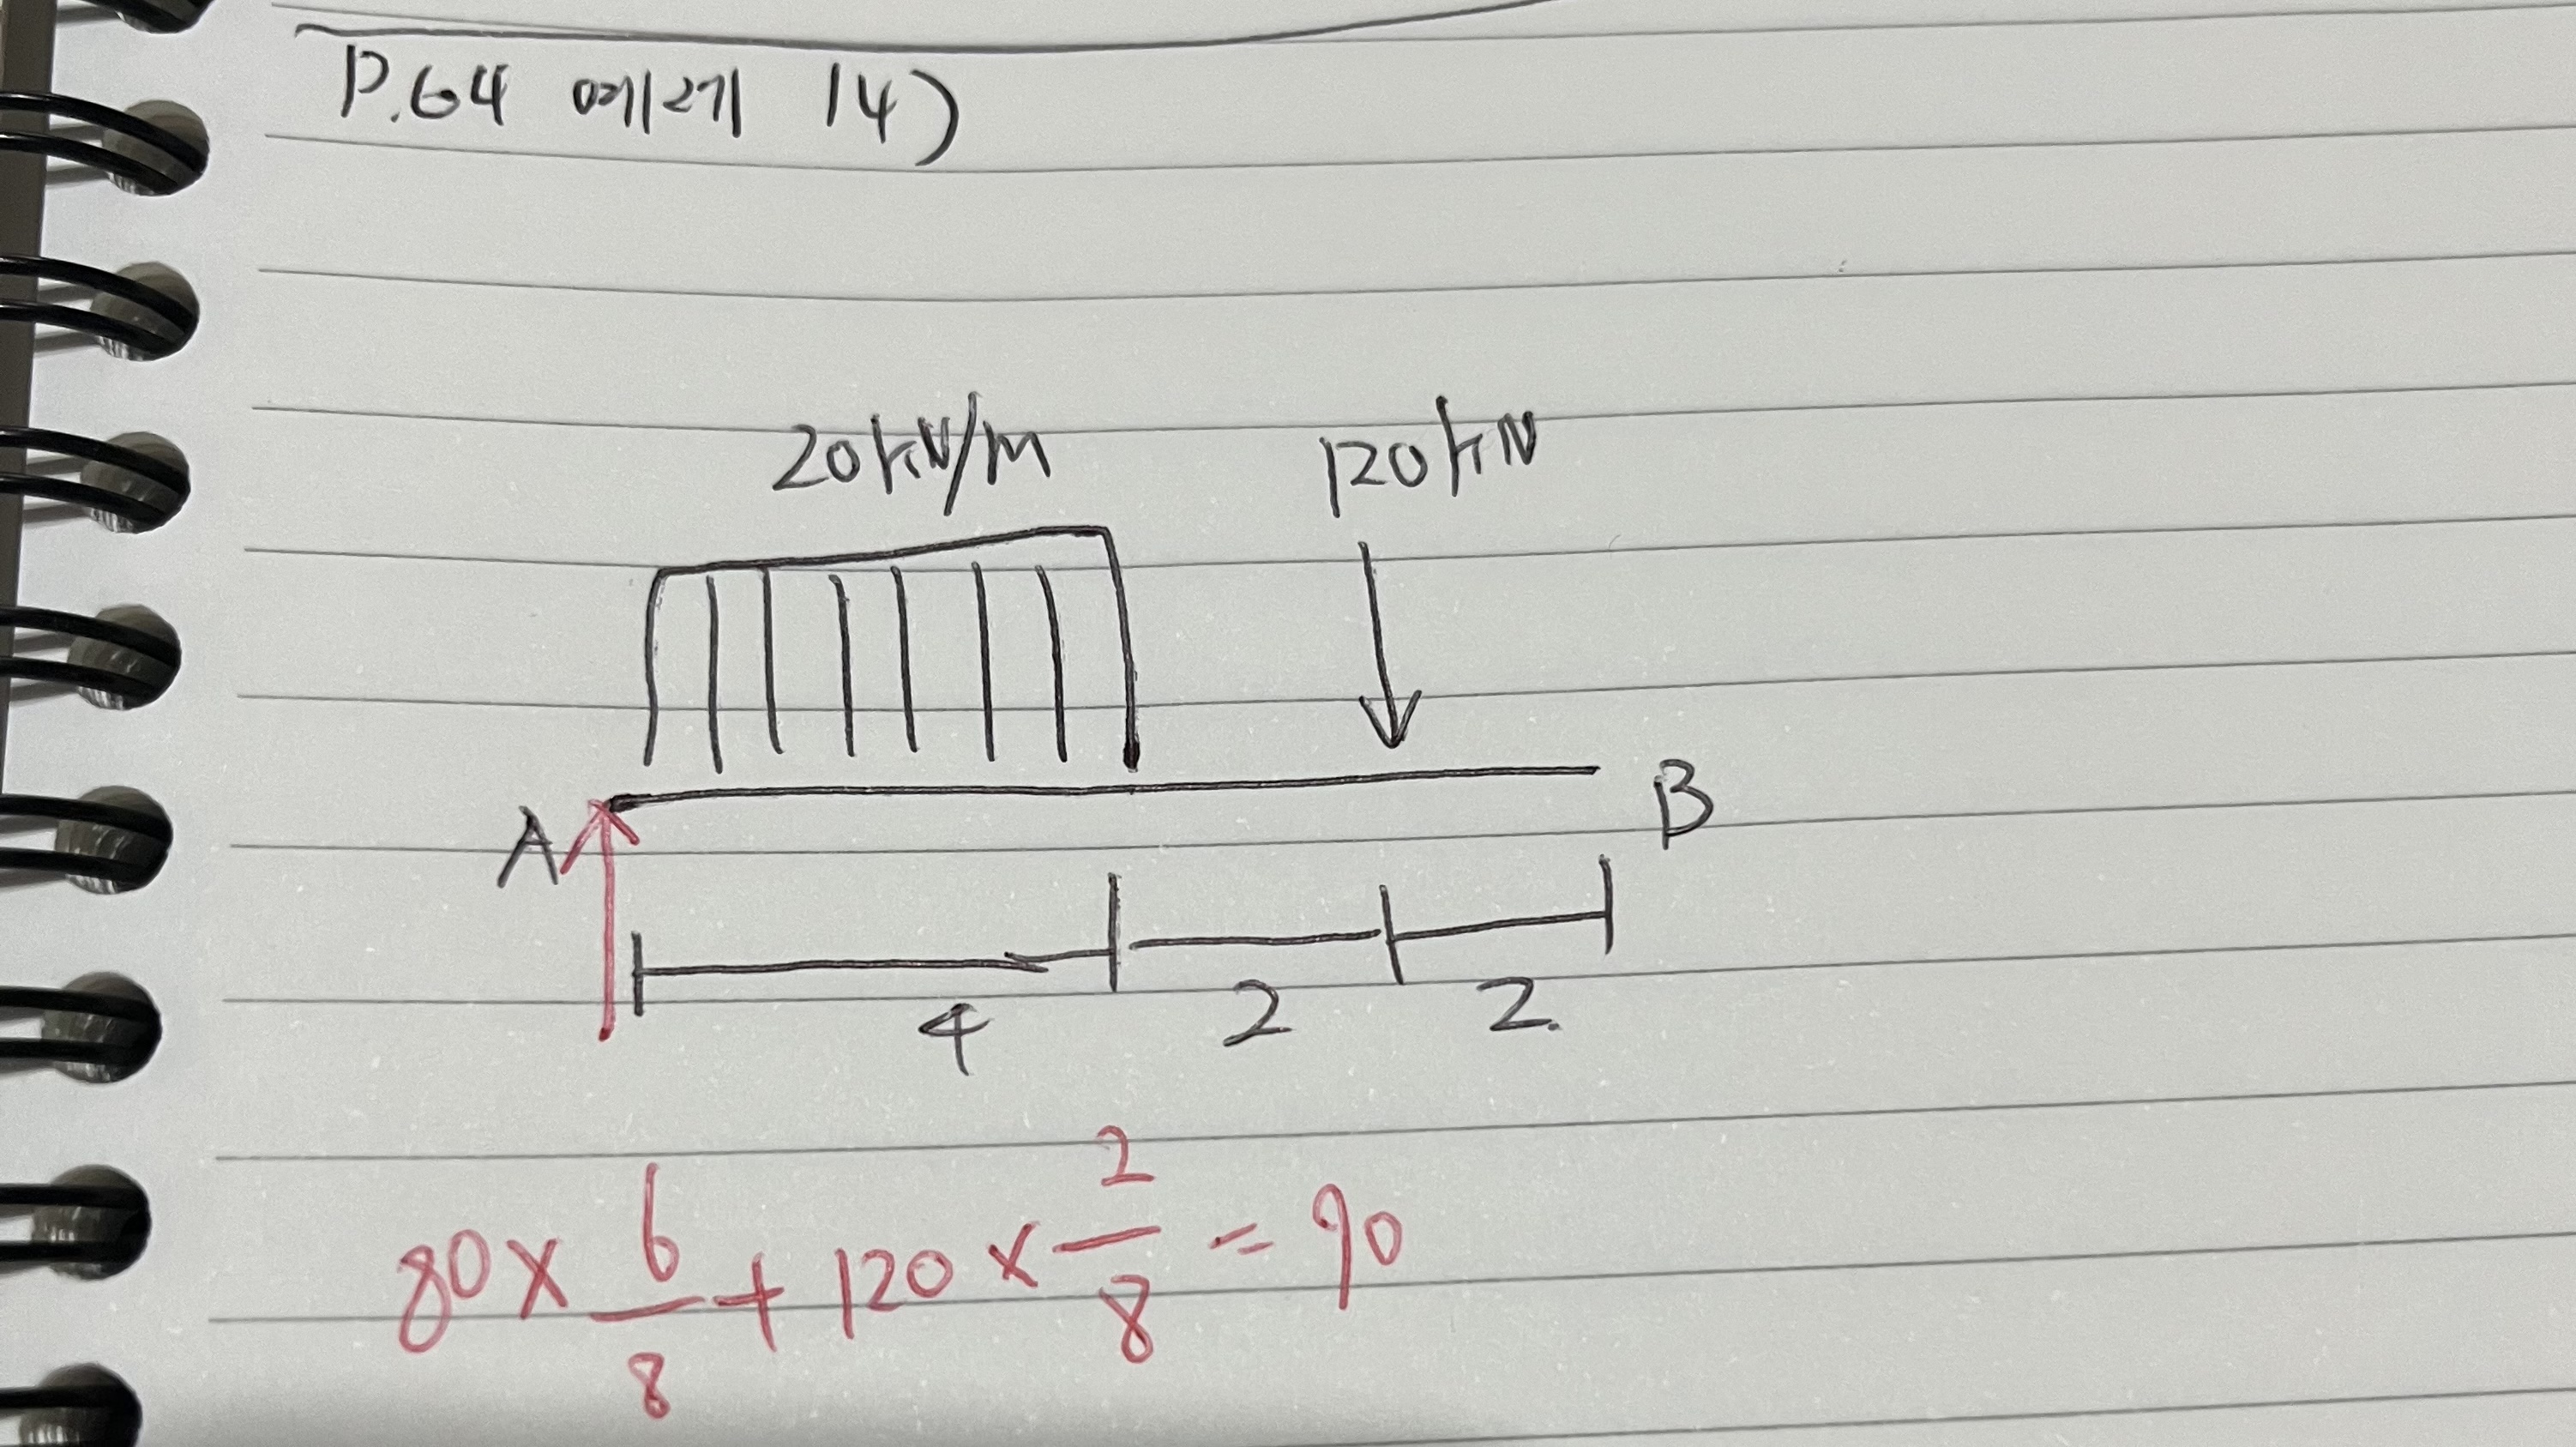 P.64 여러러 14)
20kN/m 120kN
A B
4 2 2.
80 × 6/8 + 120 × 2/8 = 90